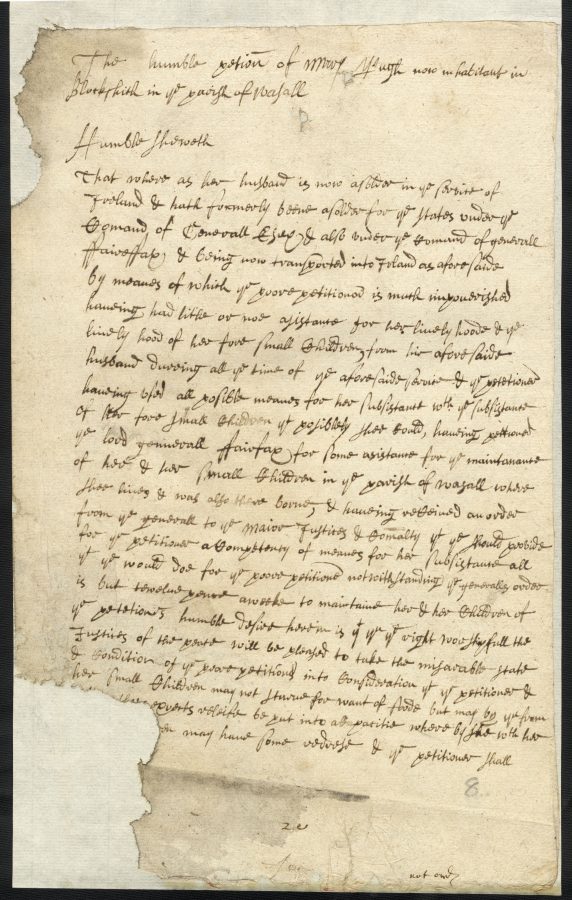 The humble petion of Mary Pugh now inhabitant in
Blockswich in ye parish of Wasall
Humble sheweth
That where as her husband is now a solder in ye service of
Ireland & hath formerly beene a solder for ye states under ye
Comand of Generall Essex & also under ye Comand of generall
ffaireffax & being now transported into Irland as afore saide
by meanes of which ye poore petitioner is much impoverished
haveing had litle or noe asistance for her lively hoode & ye
lively hood of her fore small Children from hir aforesaide
husband dureing all ye time of ye aforesaide service & ye petetioner
haveing used all posible meanes for her subsistance wth ye subsistance
of her fore small Children yt posiblely shee could, haveing petitioned
ye lord gennerall ffairfax for some asistance for ye maintanance
of her & her small Children in ye parish of Wasall where
shee lives & was also there borne, & haveing received an order
from ye generall to ye Maior Justices & Comalty yt ye should provide
for ye petitioner a Competency of meanes for her subsistance all
yt ye would doe for ye poore petitioner notwithstanding ye generalls order
is but twelve pence a weeke to maintane her & her Children of
ye petetioners humble desire herein is yt ye right worshyfull the
Justices of the peace will be pleased to take the miserable state
& Condition of ye poore petitioner into Consideration yt ye petitioner &
her small Children may not starve for want of foode but may by
releife be put into a capacitie where by shee wth her
en may have some redrese & ye petitioner shall
8
not ord